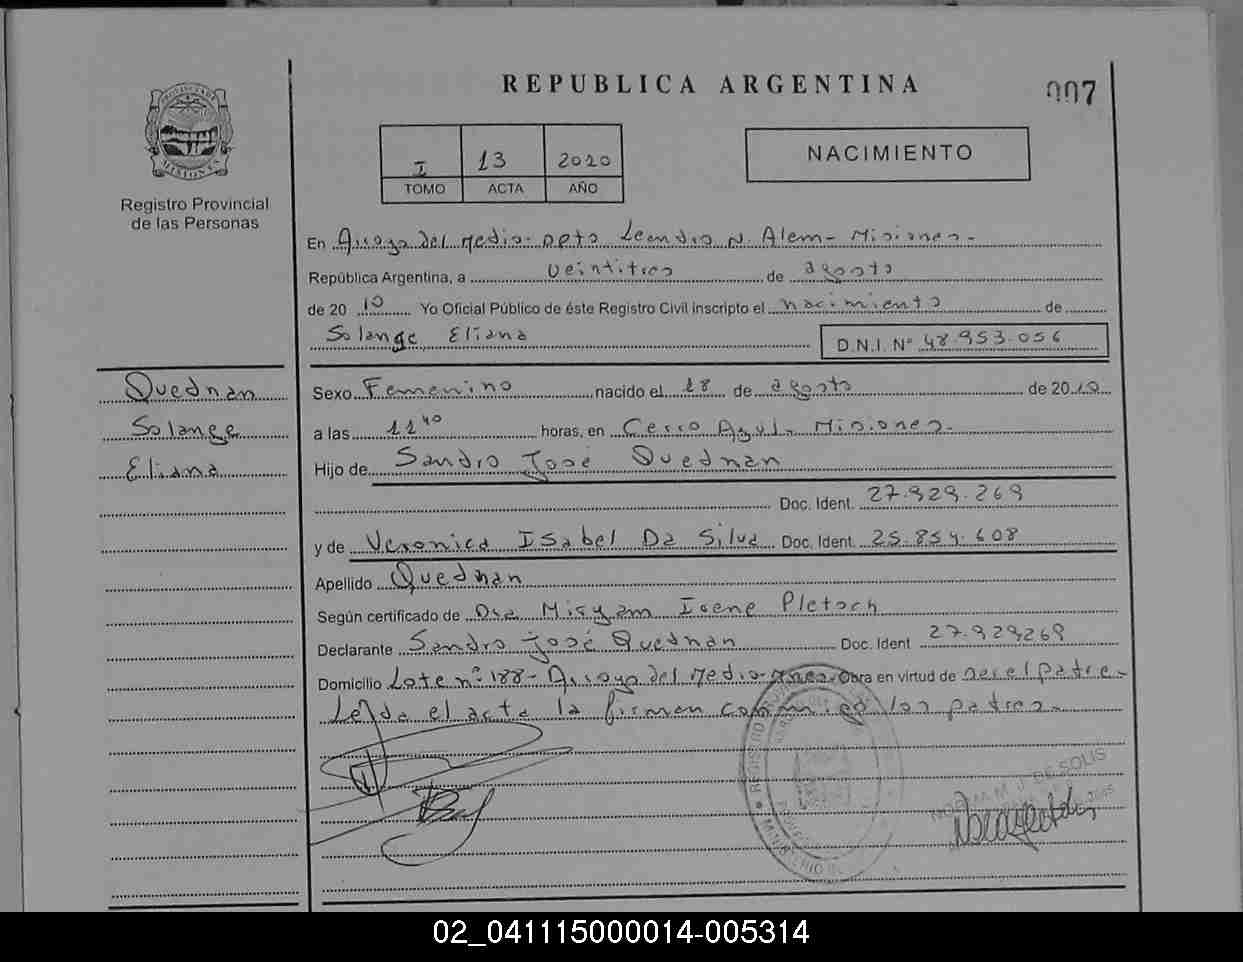 REPUBLICA ARGENTINA
007
PROVINCIA DE
MISIONES
Registro Provincial
de las Personas
I 13 2010
TOMO ACTA AÑO
NACIMIENTO
En Arroyo del Medio- Dpto Leandro N. Alem- Misiones-
República Argentina, a veintitres de agosto
de 20 10 Yo Oficial Público de éste Registro Civil inscripto el nacimiento de
Solange Eliana
D.N.I. Nº 48.953.056
Quednan
Solange
Eliana
Sexo Femenino nacido el 18 de agosto de 2010
a las 11 40 horas, en Cerro Azul- Misiones-
Hijo de Sandro José Quednan
Doc. Ident. 27.929.269
y de Veronica Isabel Da Silva Doc. Ident. 25.854.608
Apellido Quednan
Según certificado de Dra Miryam Irene Pletsch
Declarante Sandro José Quednan Doc. Ident 27.929269
Domicilio Lote nº 188- Arroyo del Medio- Mnes- Obra en virtud de ser el padre-
Leída el acta la firman conmigo los padres-
REGISTRO
MINISTERIO
NORMA M. J. DE SOLIS
02_041115000014-005314